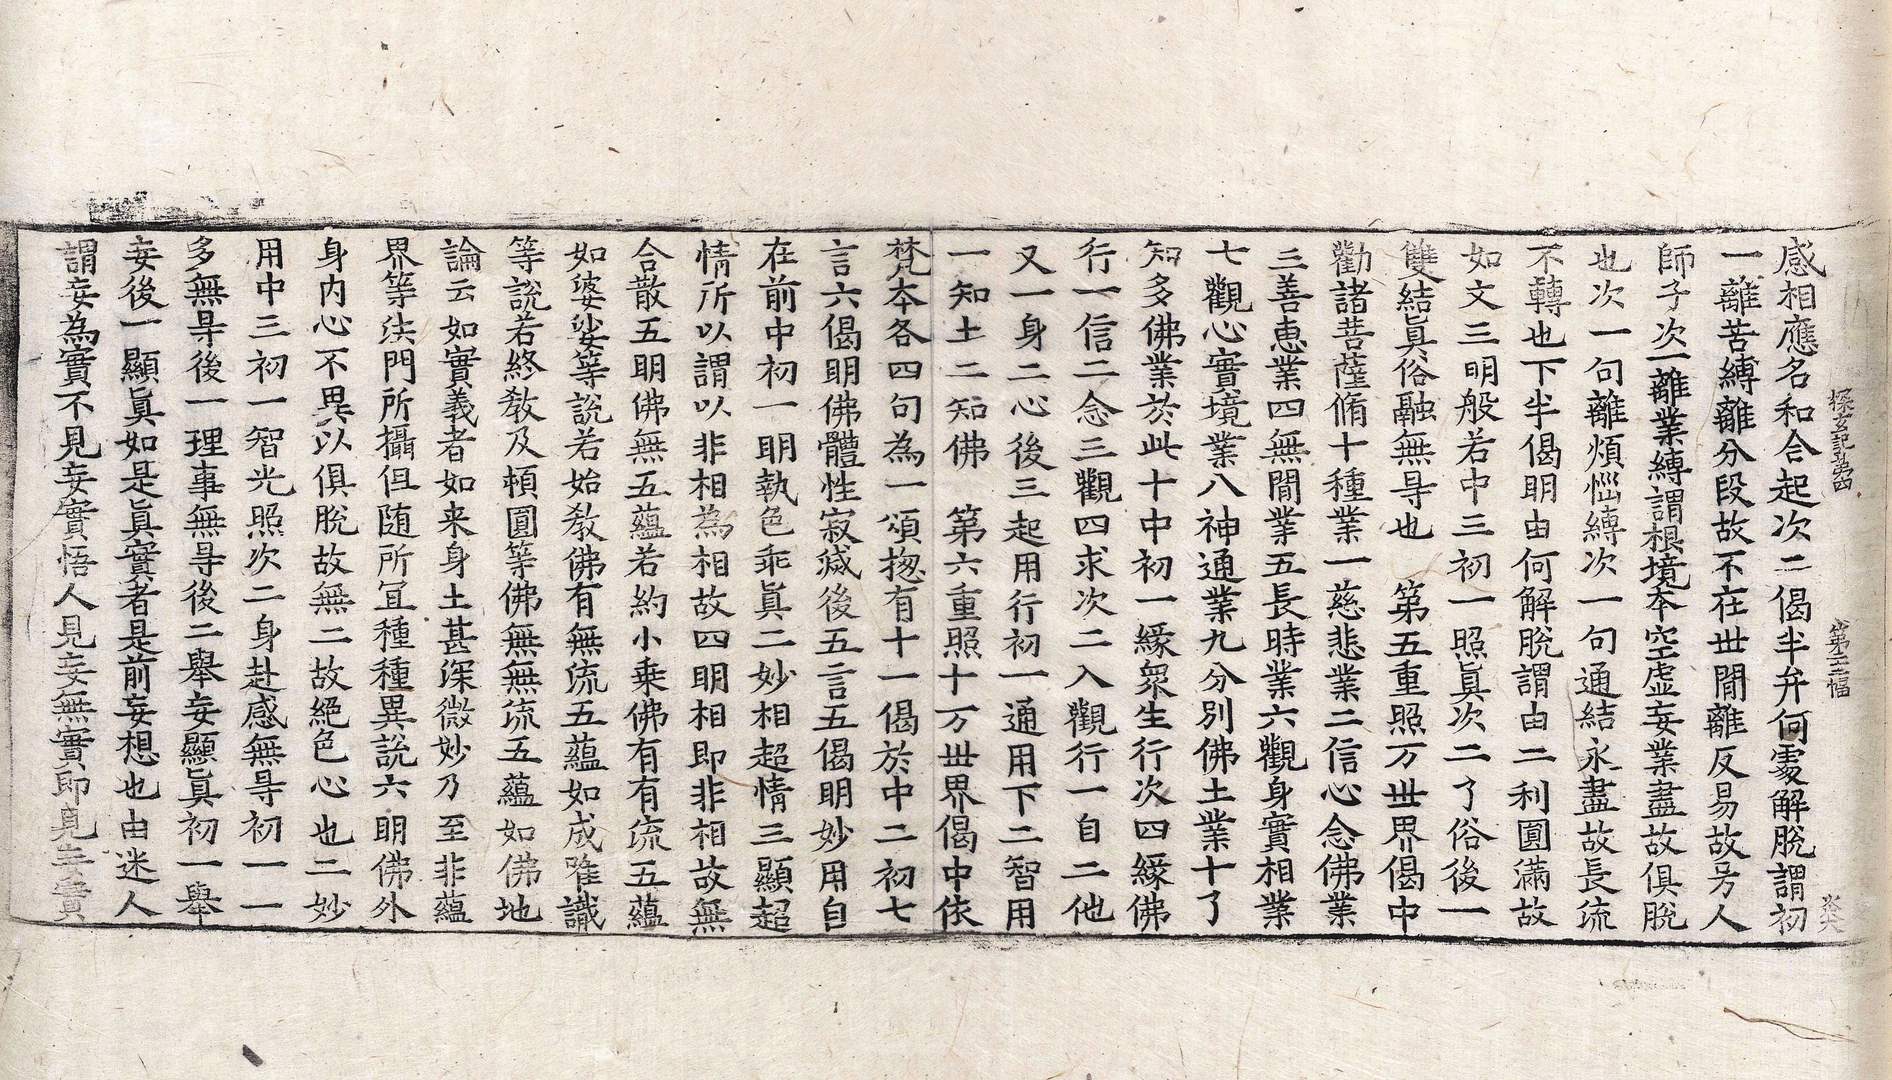 探玄記第四 第三三幅 炎
感相應名和合起次二偈半弁何處解脫謂初
一離苦縛離分段故不在世間離反易故号人
師子次一離業縛謂根境本空虛妄業盡故俱脫
也次一句離煩惱縛次一句通結永盡故長流
不轉也下半偈明由何解脫謂由二利圓滿故
如文三明般若中三初一照眞次二了俗後一
雙結眞俗融無㝵也 第五重照万世界偈中
勸諸菩薩脩十種業一慈悲業二信心念佛業
三善惠業四無間業五長時業六觀身實相業
七觀心實境業八神通業九分別佛土業十了
知多佛業於此十中初一緣衆生行次四緣佛
行一信二念三觀四求次二入觀行一自二他
又一身二心後三起用行初一通用下二智用
一知土二知佛 第六重照十万世界偈中依
梵本各四句為一頌揔有十一偈於中二初七
言六偈明佛體性寂滅後五言五偈明妙用自
在前中初一明執色乖眞二妙相超情三顯超
情所以謂以非相為相故四明相即非相故無
合散五明佛無五蘊若約小乘佛有有流五蘊
如婆娑等說若始敎佛有無流五蘊如成唯識
等說若終敎及頓圓等佛無無流五蘊如佛地
論云如實義者如来身土甚深微妙乃至非蘊
界等法門所攝但随所冝種種異說六明佛外
身內心不異以俱脫故無二故絕色心也二妙
用中三初一智光照次二身赴感無㝵初一一
多無㝵後一理事無㝵後二舉妄顯眞初一舉
妄後一顯眞如是眞實者是前妄想也由迷人
謂妄為實不見妄實悟人見妄無實即見妄實